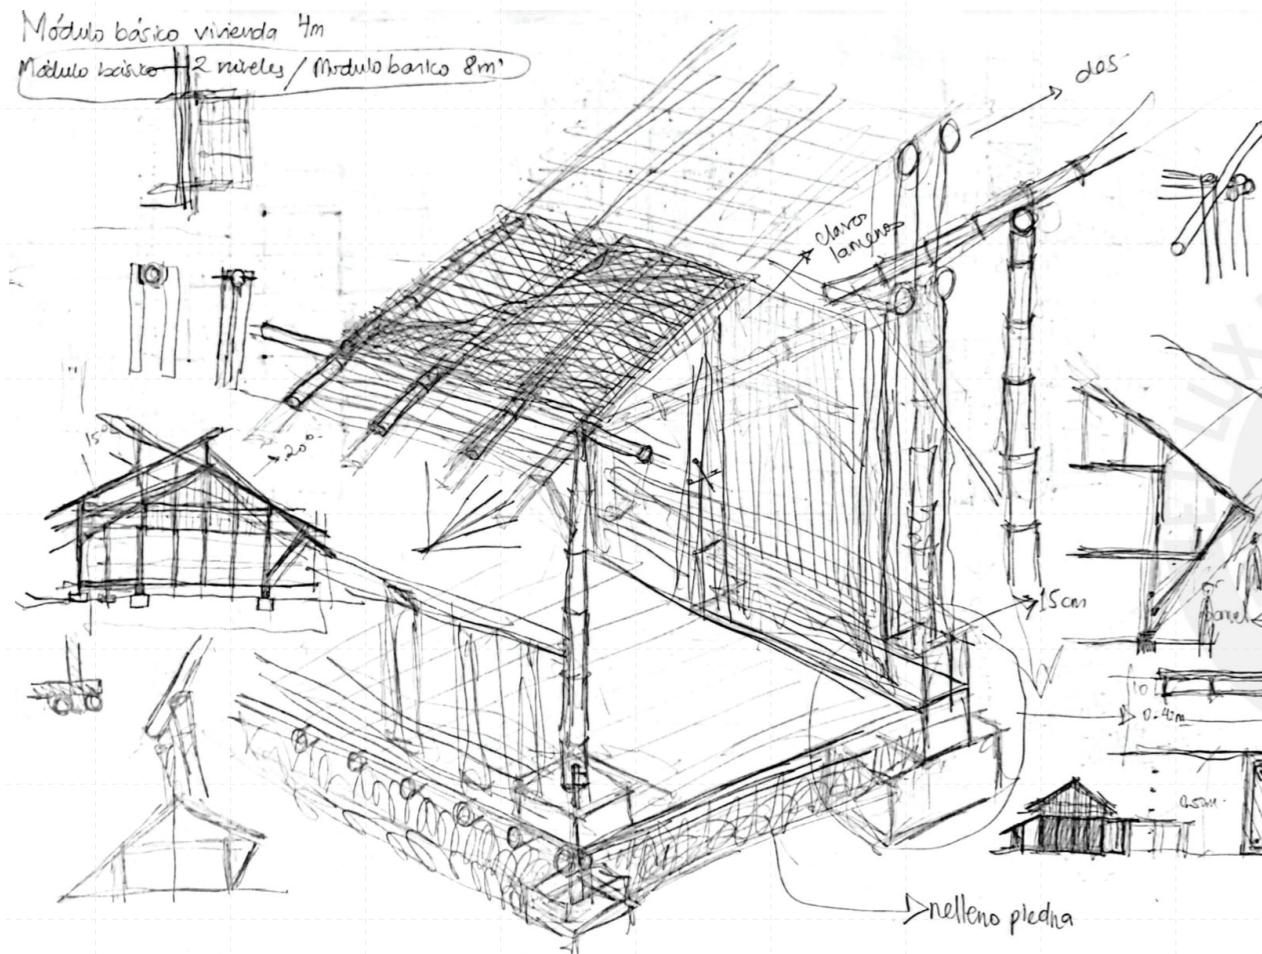 Módulo básico vivienda 4m
Módulo básico 2 niveles / Modulo barico 8m²
dos
claros
15°
20°
15cm
panel
10
0.42m
relleno piedra